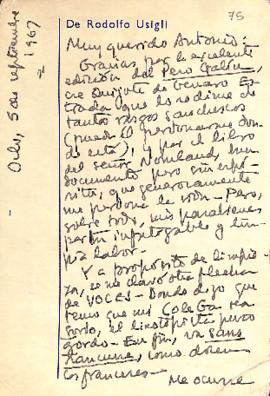 De Rodolfo Usigli
75
Oslo, 5 de septiembre
1967
Muy querido Antonio:
Gracias por la excelente
edición del Pero Galín,
ese Quijote de Genaro Es-
trada que lo redime de
tantos rasgos sanchescos
(pueda él perdonarme don-
de esté), y por el libro
del señor
documento pero sin espí-
ritu, que generosamente
me perdona la vida. Pero,
sobre todo, mis parabienes
por tu infatigable y lim-
pia labor.
Y a propósito de limpie-
za, se me clavó otra flecha
de VOCES. Donde digo que
temo que mi Colega sea
sordo, el linotipista puso
gordo. En fin, va sans
rancune, como dicen
los franceses.
Me ocurre